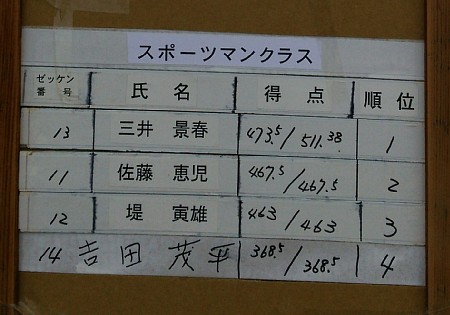 スポーツマンクラス
ゼッケン番号 氏名 得点 順位
13 三井 景春 473.5/511.38 1
11 佐藤 恵児 467.5/467.5 2
12 堤 寅雄 463/463 3
14 吉田 茂平 368.5/368.5 4